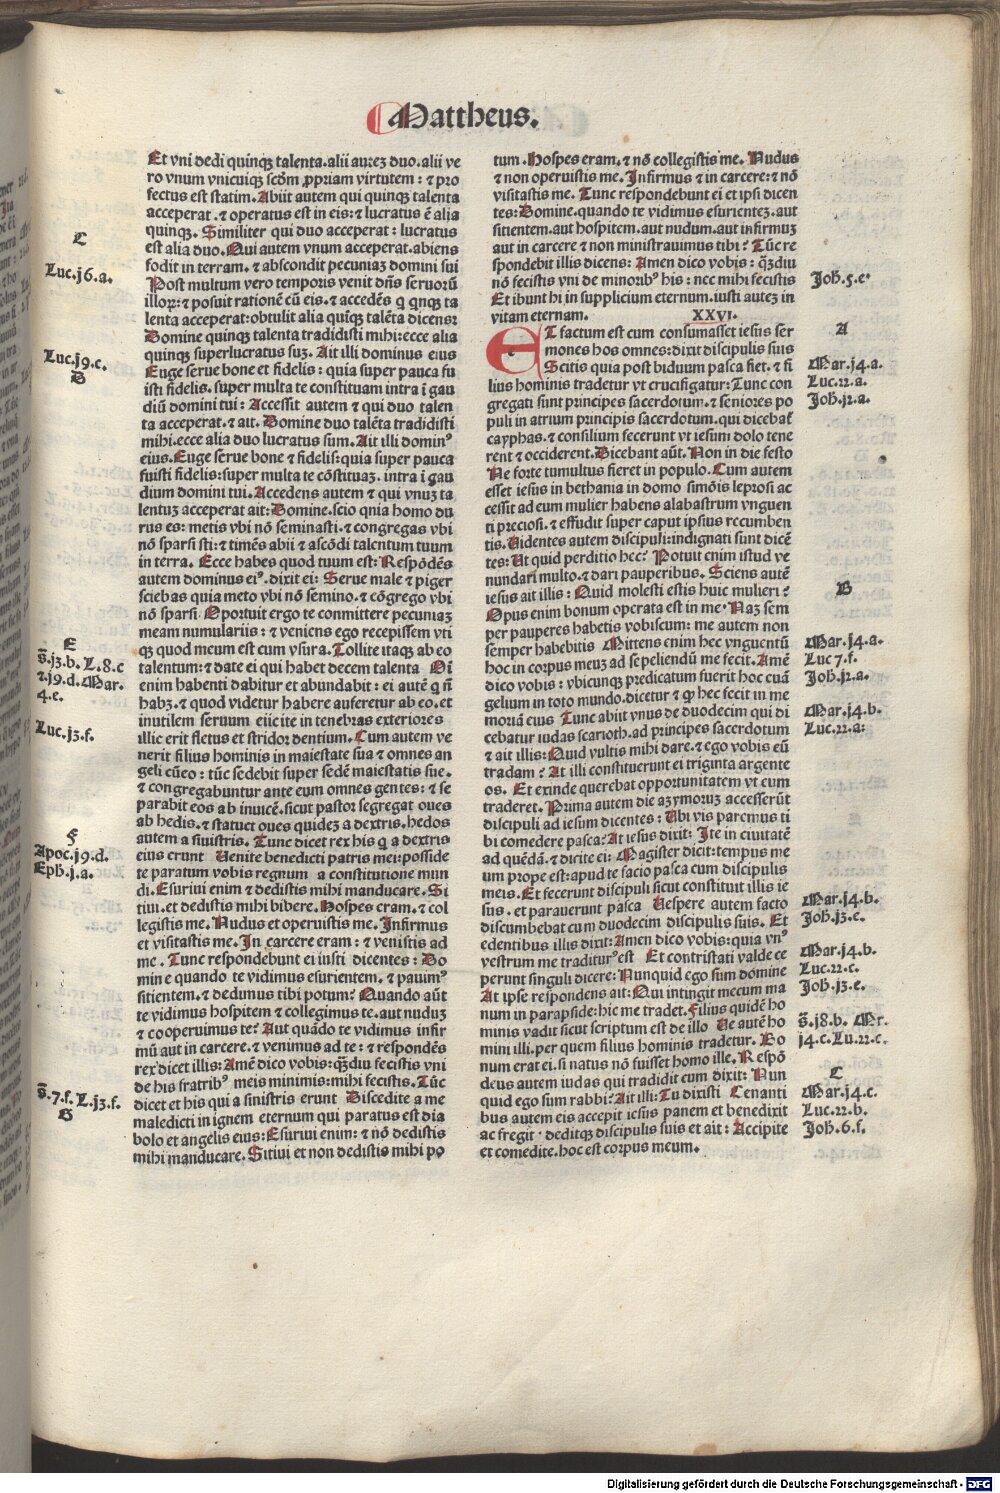 Mattheus.
Et vni dedi quinqꝫ talenta. alii aureꝫ duo. alii ve
ro vnum vnicuiqꝫ scd̄m ꝓpriam virtutem : ⁊ pro
fectus est statim. Abiit autem qui quinqꝫ talenta
acceperat. ⁊ operatus est in eis: ⁊ lucratus ē alia
quinqꝫ. Similiter qui duo acceperat: lucratus
est alia duo. Qui autem vnum acceperat. abiens
fodit in terram. ⁊ abscondit pecuniaꝫ domini sui
Post multum vero temporis venit dn̄s seruorū
illoꝝ: ⁊ posuit rationē cū eis. ⁊ accedēs q̄ qnqꝫ ta
lenta acceperat: obtulit alia quīqꝫ talēta dicens:
Domine quinqꝫ talenta tradidisti mihi: ecce alia
quinqꝫ superlucratus suꝫ. Ait illi dominus eius
Euge serue bone et fidelis : quia super pauca fu
isti fidelis. super multa te constituam intra ī gau
diū domini tui : Accessit autem ⁊ qui duo talen
ta acceperat. ⁊ ait. Domine duo talēta tradidisti
mihi. ecce alia duo lucratus sum. Ait illi dominꝰ
eius. Euge serue bone ⁊ fidelis: quia super pauca
fuisti fidelis: super multa te cōstituaꝫ. intra ī gau
dium domini tui. Accedens autem ⁊ qui vnuꝫ ta
lentuꝫ acceperat ait: Domine. scio qnia homo du
rus es: metis vbi nō seminasti. ⁊ congregas vbi
nō sparsi sti: ⁊ timēs abii ⁊ ascōdi talentum tuum
in terra. Ecce habes quod tuum est: Respōdēs
autem dominus eiꝰ. dixit ei: Serue male ⁊ piger
sciebas quia meto vbi nō semino. ⁊ cōgrego vbi
nō sparsi Oportuit ergo te committere pecuniaꝫ
meam numulariis : ⁊ veniens ego recepissem vti
qꝫ quod meum est cum vsura. Tollite itaqꝫ ab eo
talentum: ⁊ date ei qui habet decem talenta Oī
enim habenti dabitur et abundabit : ei autē q̄ n̄
habꝫ. ⁊ quod videtur habere auferetur ab eo. et
inutilem seruum eiicite in tenebras exteriores
illic erit fletus et stridor dentium. Cum autem ve
nerit filius hominis in maiestate sua ⁊ omnes an
geli cū eo : tūc sedebit super sedē maiestatis sue.
⁊ congregabuntur ante eum omnes gentes: ⁊ se
parabit eos ab inuicē. sicut pastor segregat oues
ab hedis. ⁊ statuet oues quideꝫ a dextris. hedos
autem a sinistris. Tunc dicet rex his q̄ a dextris
eius erunt Uenite benedicti patris mei: posside
te paratum vobis regnum a constitutione mun
di. Esuriui enim ⁊ dedistis mihi manducare. Si
tiui. et dedistis mihi bibere. Hospes eram. ⁊ col
legistis me. Nudus et operuistis me. Infirmus
et visitastis me. In carcere eram: ⁊ venistis ad
me. Tunc respondebunt ei iusti dicentes: Do
mine quando te vidimus esurientem. ⁊ pauimꝰ
sitientem. ⁊ dedimus tibi potum? Quando aūt
te vidimus hospitem ⁊ collegimus te. aut nuduꝫ
⁊ cooperuimus te? Aut quādo te vidimus infir
mū aut in carcere. ⁊ venimus ad te : ⁊ respondēs
rex dicet illis: Amē dico vobis: qꝫdiu fecistis vni
de his fratribꝰ meis minimis: mihi fecistis. Tūc
dicet et his qui a sinistris erunt Discedite a me
maledicti in ignem eternum qui paratus est dia
bolo et angelis eius: Esuriui enim: ⁊ nō dedistis
mihi manducare. Sitiui et non dedistis mihi po
C
Luc.j6.a.
Luc.j9.c.
D
E
s̄.j3.b. L.8.c
⁊.j9.d. Mar.
4.e.
Luc.j3.f.
F
Apoc.j9.d.
Eph.j.a.
s̄.7.f. L.j3.f.
G
tum. Hospes eram. ⁊ nō collegistis me. Nudus
⁊ non operuistis me. Infirmus ⁊ in carcere: ⁊ nō
visitastis me. Tunc respondebunt ei et ipsi dicen
tes: Domine. quando te vidimus esurienteꝫ. aut
sitientem. aut hospitem. aut nudum. aut infirmuꝫ
aut in carcere ⁊ non ministrauimus tibi? Tūc re
spondebit illis dicens: Amen dico vobis: qꝫdiu
nō fecistis vni de minoribꝰ his : nec mihi fecistis
Et ibunt hi in supplicium eternum. iusti auteꝫ in
vitam eternam. XXVI.
ET factum est cum consumasset iesus ser
mones hos omnes: dixit discipulis suis
Scitis quia post biduum pasca fiet. ⁊ fi
lius hominis tradetur vt crucifigatur: Tunc con
gregati sunt principes sacerdotum. ⁊ seniores po
puli in atrium principis sacerdotum. qui dicebat̄
cayphas. ⁊ consilium fecerunt vt iesum dolo tene
rent ⁊ occiderent. Dicebant aūt. Non in die festo
Ne forte tumultus fieret in populo. Cum autem
esset iesus in bethania in domo simōis leprosi ac
cessit ad eum mulier habens alabastrum vnguen
ti preciosi. ⁊ effudit super caput ipsius recumben
tis. Uidentes autem discipuli: indignati sunt dicē
tes: Ut quid perditio hec? Potuit enim istud ve
nundari multo. ⁊ dari pauperibus. Sciens autē
iesus ait illis: Quid molesti estis huic mulieri?
Opus enim bonum operata est in me. Naꝫ sem
per pauperes habetis vobiscum: me autem non
semper habebitis Mittens enim hec vnguentū
hoc in corpus meuꝫ ad sepeliendū me fecit. Amē
dico vobis : vbicunqꝫ predicatum fuerit hoc euā
gelium in toto mundo. dicetur ⁊ qꝫ hec fecit in me
moriā eius Tunc abiit vnus de duodecim qui di
cebatur iudas scarioth. ad principes sacerdotum
⁊ ait illis: Quid vultis mihi dare. ⁊ ego vobis eū
tradam? At illi constituerunt ei triginta argente
os. Et exinde querebat opportunitatem vt eum
traderet. Prima autem die azymoruꝫ accesserūt
discipuli ad iesum dicentes: Ubi vis paremus ti
bi comedere pasca? At iesus dixit: Ite in ciuitatē
ad quēdā. ⁊ dicite ei: Magister dicit: tempus me
um prope est: apud te facio pasca cum discipulis
meis. Et fecerunt discipuli sicut constituit illis ie
sus. et parauerunt pasca Uespere autem facto
discumbebat cum duodecim discipulis suis. Et
edentibus illis dixit: Amen dico vobis: quia vnꝰ
vestrum me traditurꝰ est Et contristati valde ce
perunt singuli dicere: Nunquid ego sum domine
At ipse respondens ait: Qui intingit mecum ma
num in parapside: hic me tradet. Filius quidē ho
minis vadit sicut scriptum est de illo Ue autē ho
mini illi. per quem filius hominis tradetur. Bo
num erat ei. si natus nō fuisset homo ille. Respō
dens autem iudas qui tradidit eum dixit: Nun
quid ego sum rabbi? Ait illi: Tu dixisti Cenanti
bus autem eis accepit iesus panem et benedixit
ac fregit. deditqꝫ discipulis suis et ait: Accipite
et comedite. hoc est corpus meum.
Joh.5.e.
A
Mar.j4.a.
Luc.22.a.
Joh.j2.a.
B
Mar.j4.a.
Luc 7.f.
Joh.j2.a.
Mar.j4.b.
Luc.22.a:
Mar.j4.b.
Joh.j3.c.
Mar.j4.b.
Luc.22.c.
Joh.j3.e.
s̄.j8.b. Mr.
j4.c. Lu.22.c.
C
Mar.j4.c.
Luc.22.b.
Joh.6.f.
Digitalisierung gefördert durch die Deutsche Forschungsgemeinschaft - DFG